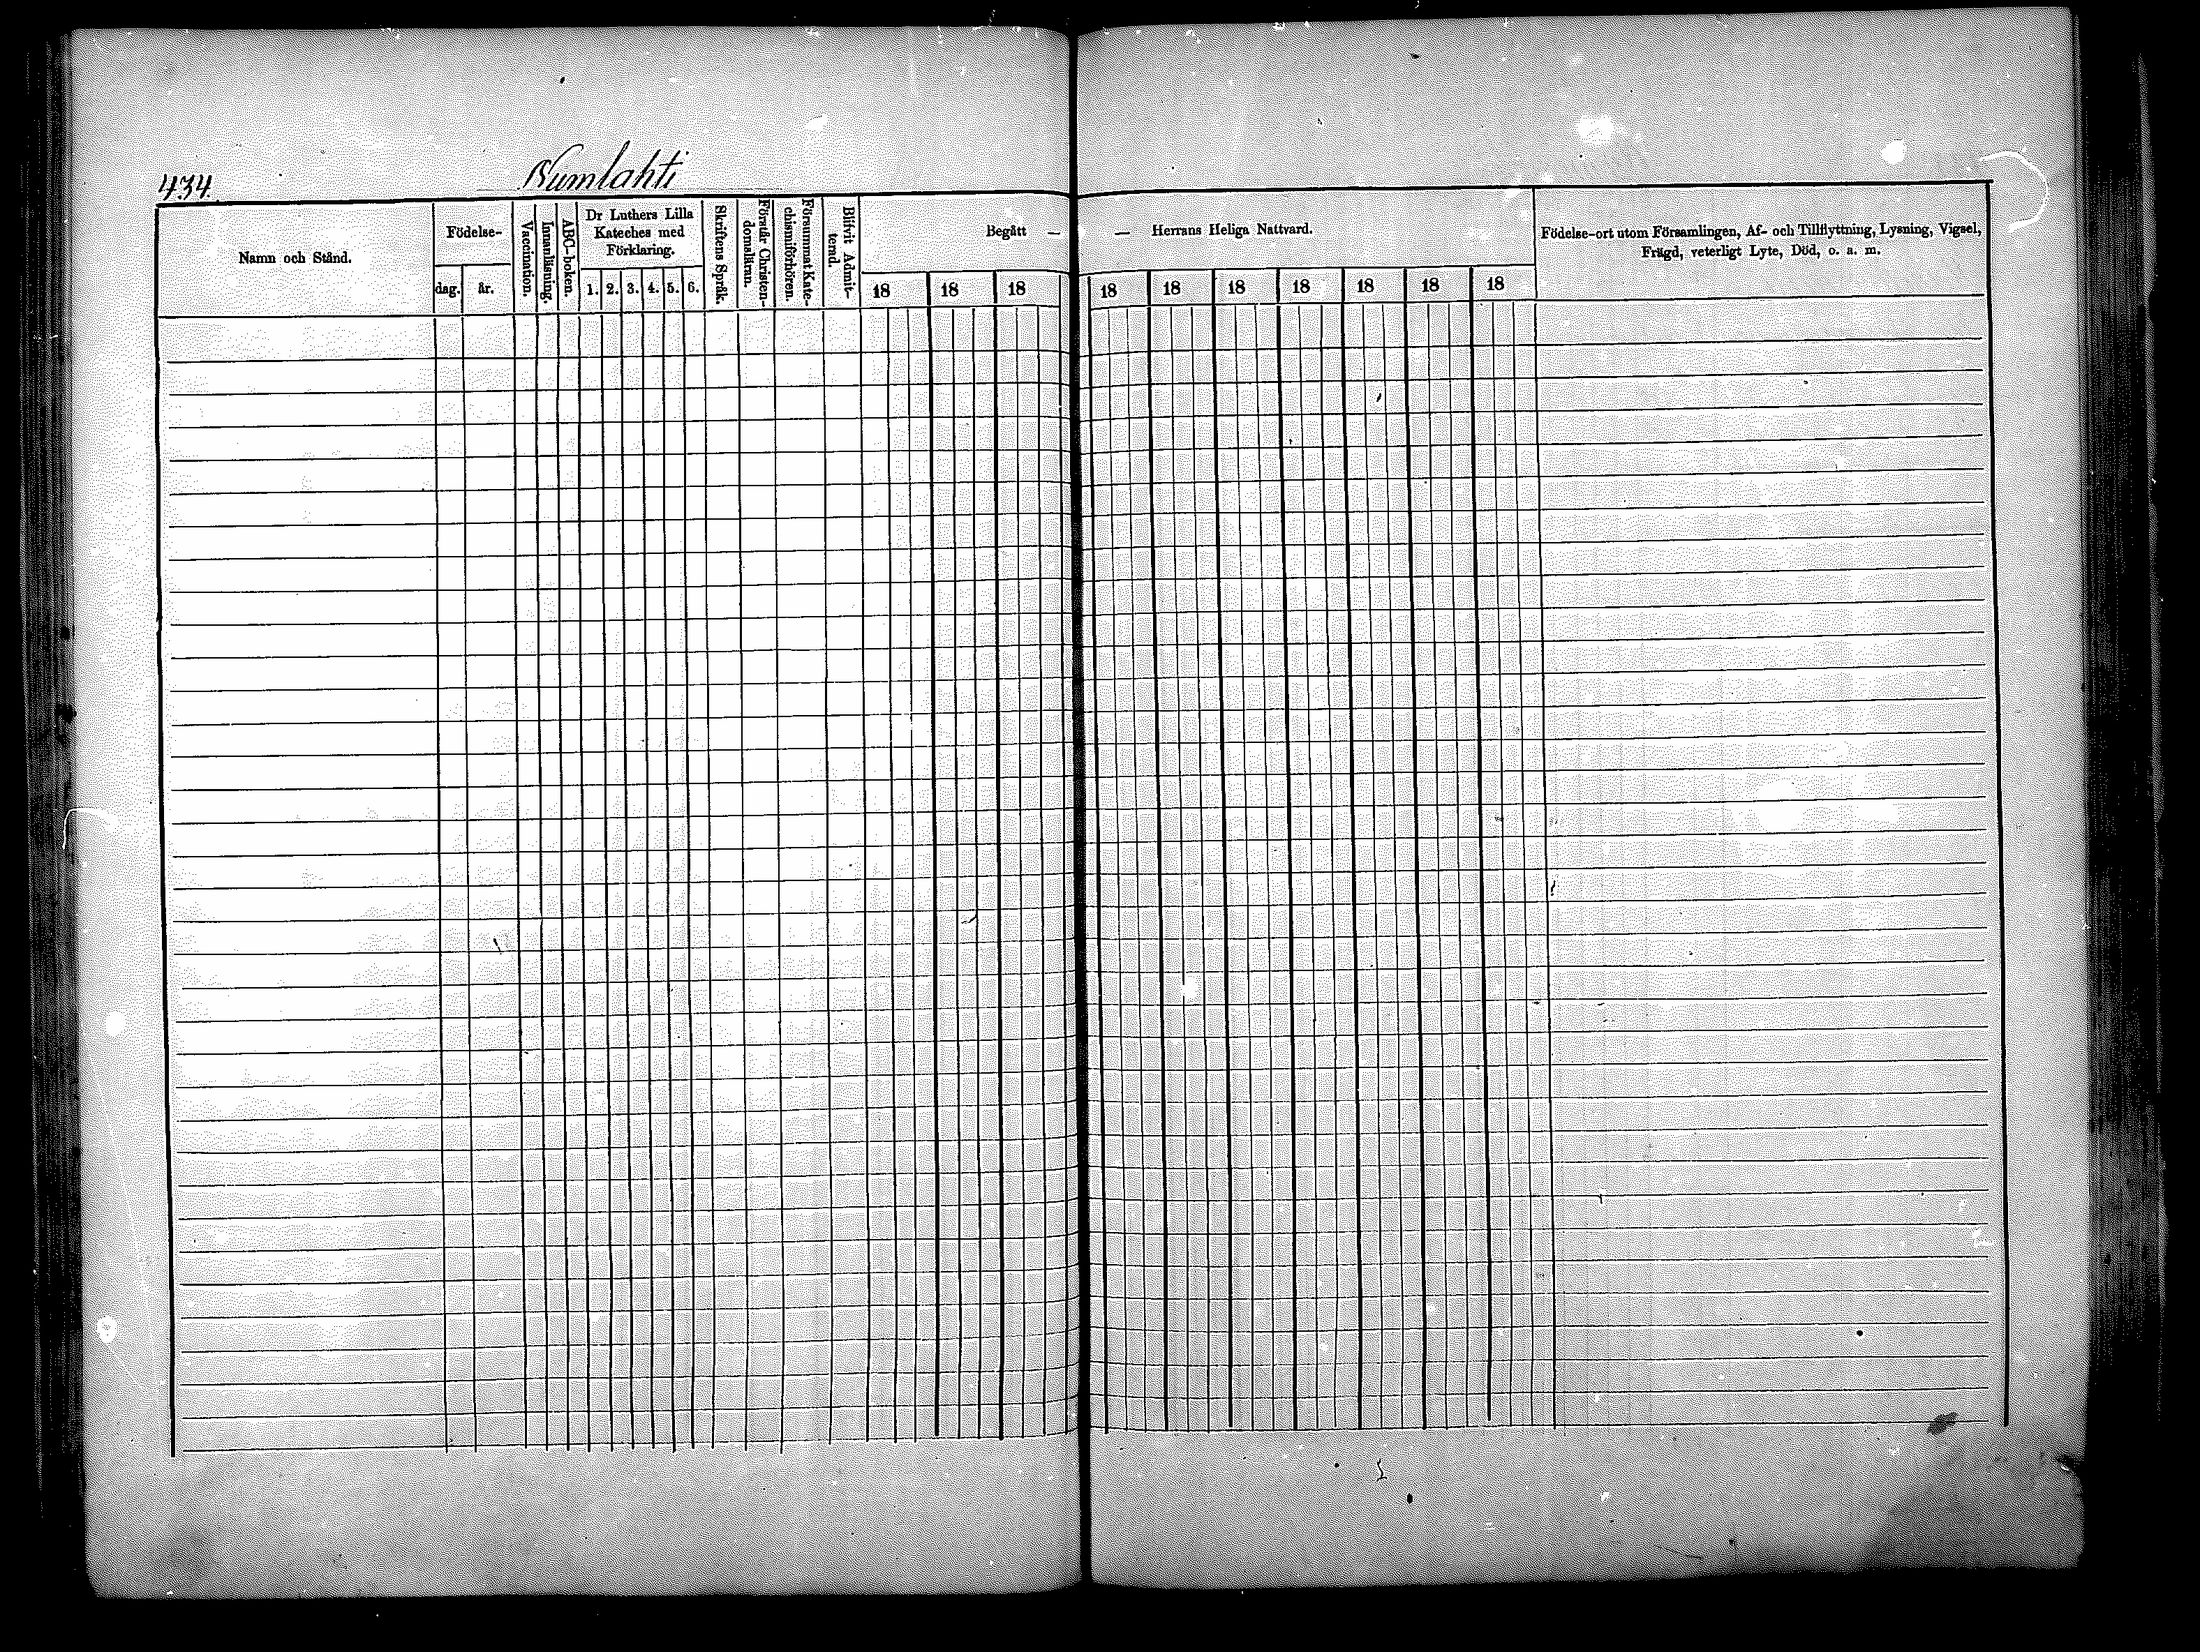 434.
Numlahti
Namn och Stånd.
Födelse-
dag.
år.
Vaccination.
Innanläsning.
ABC-boken.
Dr Luthers Lilla
Kateches med
Förklaring.
1. 2. 3. 4. 5. 6.
Skriftens Språk.
Förstår Christen-
domsläran.
Försummat Kate-
chismiförhören.
Blifvit Admit-
terad.
Begått —
— Herrans Heliga Nattvard.
18 18 18 18 18 18 18 18 18 18
Födelse-ort utom Församlingen, Af- och Tillflyttning, Lysning, Vigsel,
Frägd, veterligt Lyte, Död, o. a. m.